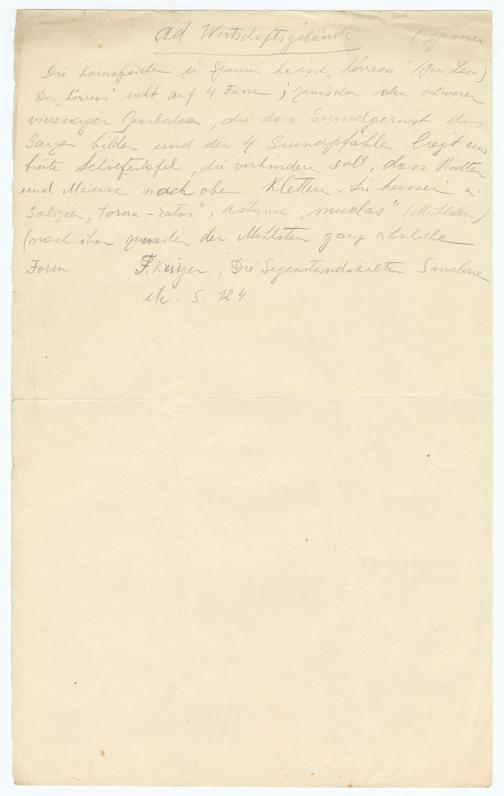 Ad Wirtschaftsgebäude Spanien
Die Kornspeicher in Spanien heissen „hórreos" (Prov. Leon)
Der hórreos ruht auf 4 Füssen; zwischen den schweren
viereckigen, die das Grundgerüst des
Ganzen bilden und den 4 Grundpfählen liegt eine
breite Schiefertafel, die verhindern soll, dass Ratten
und Mäuse nach oben klettern. Sie heissen in
Galizien „torna-ratos", asturn „muelas" (Mühlstein)
(nach ihrer zuweilen der Mühlstein ganz ähnliche
Form. F. Krüger, Die Gegenstandskultur
etc. S. 124